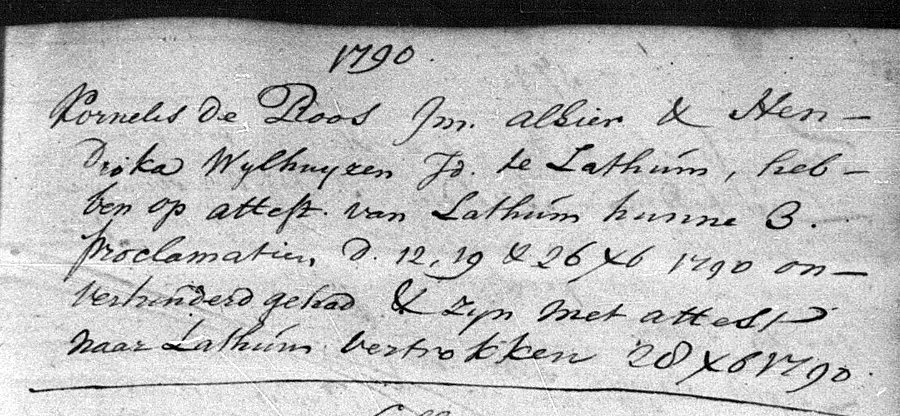 1790.
Kornelis de Roos Jm. alhier & Hen-
drika Wylhuyzen Jd. te Lathum, heb-
ben op attest. van Lathum hunne 3.
proclamatien, d. 12, 19 & 26 Xb 1790 on-
verhinderd gehad & zyn met attest
naar Lathum vertrokken 28 Xb 1790.